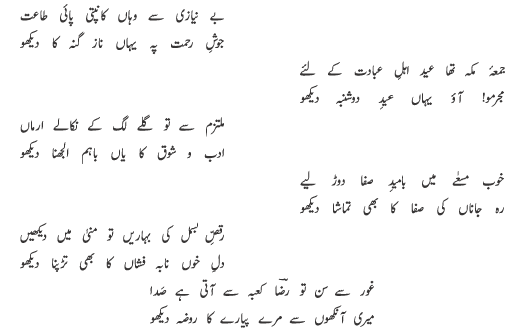 بے نیازی سے وہاں کانپتی پائی طاعت
جوشِ رحمت پہ یہاں ناز گنہ کا دیکھو
جمعۂ مکہ تھا عید اہلِ عبادت کے لئے
مجرمو! آؤ یہاں عیدِ دوشنبہ دیکھو
ملتزم سے تو گلے لگ کے نکالے ارماں
ادب و شوق کا یاں باہم الجھنا دیکھو
خوب مسعٰے میں بامیدِ صفا دوڑ لیے
رہ جاناں کی صفا کا بھی تماشا دیکھو
رقصِ بسمل کی بہاریں تو منٰی میں دیکھیں
دلِ خوں نابہ فشاں کا بھی تڑپنا دیکھو
غور سے سن تو رضؔا کعبہ سے آتی ہے صَدا
میری آنکھوں سے مرے پیارے کا روضہ دیکھو